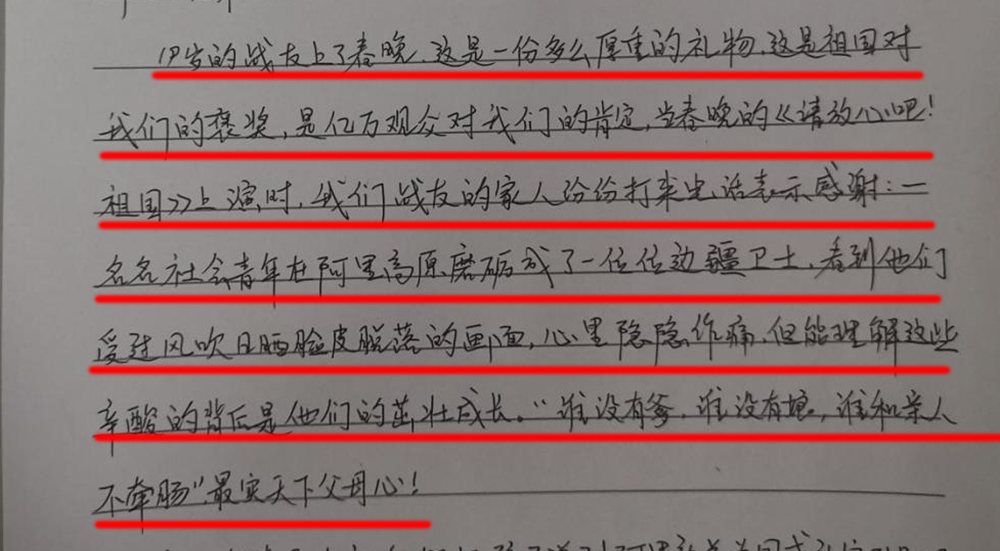 19岁的战友上了春晚,这是一份多么厚重的礼物,这是祖国对
我们的褒奖,是亿万观众对我们的肯定,当春晚的《请放心吧!
祖国》上演时,我们战友的家人纷纷打来电话表示感谢:一
名名社会青年在阿里高原磨砺成了一位位边疆卫士,看到他们
受过风吹日晒脸皮脱落的画面,心里隐隐作痛,但能理解这些
辛酸的背后是他们的茁壮成长。"谁没有爹,谁没有娘,谁和亲人
不牵肠"最实天下父母心!